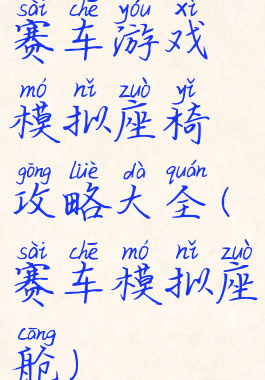 sài chē yóu xì
赛车游戏
mó nǐ zuò yǐ
模拟座椅
gōng lüè dà quán
攻略大全(
sài chē mó nǐ zuò
赛车模拟座
cāng
舱)